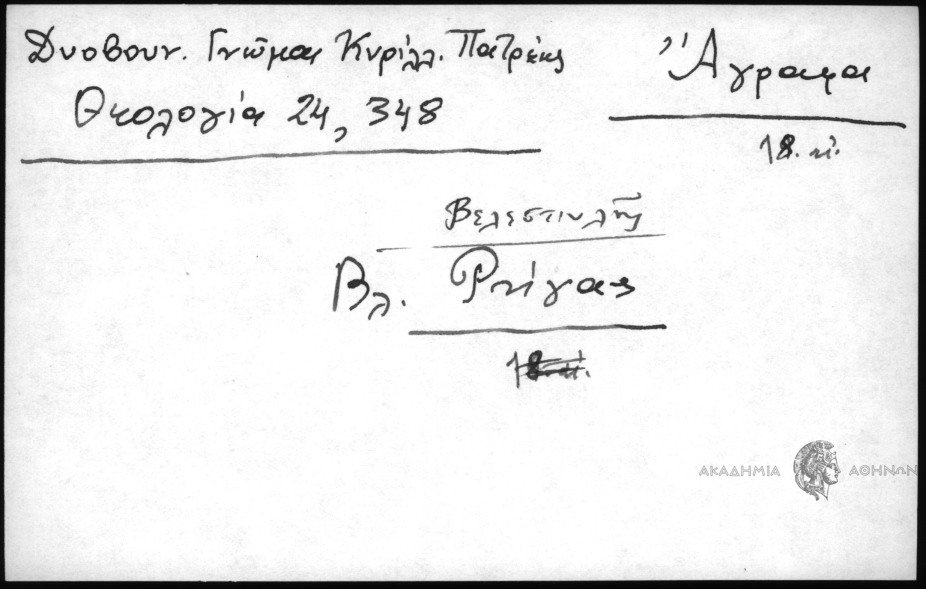 Δυοβουν. Γνῶμαι Κυρίλλ. Πατρῶν
Θεολογία 24, 348
Ἄγραφα
18. αἰ.
Βελεστινλῆς
Βλ. Ρήγας
18. αἰ.
ΑΚΑΔΗΜΙΑ ΑΘΗΝΩΝ